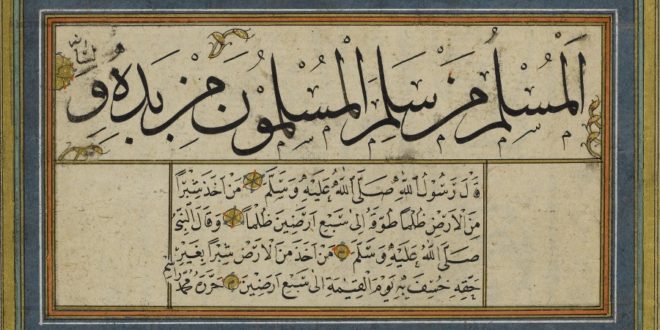 اَلْمُسْلِمُ مَنْ سَلِمَ الْمُسْلِمُونَ مِنْ يَدِهِ وَلِسَانِهِ
قَالَ رَسُولُ اللهِ صَلَّى اللهُ عَلَيْهِ وَسَلَّمَ مَنْ اَخَذَ شِبْرًا
مِنَ الْاَرْضِ ظُلْمًا طُوِّقَهُ اِلَى سَبْعِ اَرَضِينَ ظُلْمًا وَقَالَ النَّبِىُّ
صَلَّى اللهُ عَلَيْهِ وَسَلَّمَ مَنْ اَخَذَ مِنَ الْاَرْضِ شِبْرًا بِغَيْرِ
حَقِّهِ خُسِفَ بِهِ يَوْمَ الْقِيٰمَةِ اِلَى سَبْعِ اَرَضِينَ حَرَّرَهُ مُحَمَّد